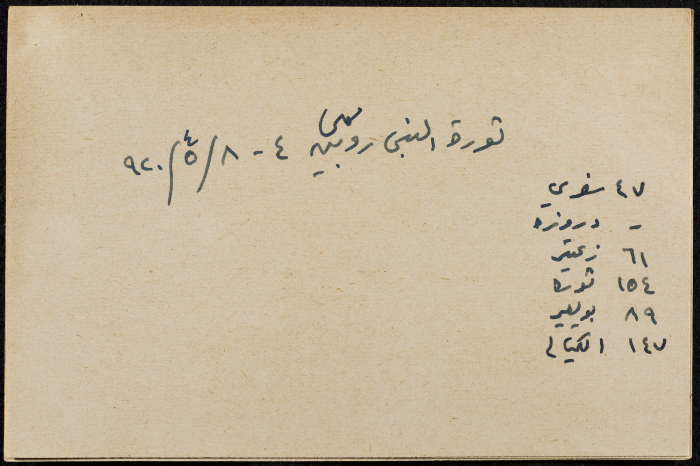 ثورة النبي روبين موسى ٤ - ٨/٤/٩٢٠
٤٧ سفري
- دروزه
٦١ زعيتر
١٥٤ ثوره
٨٩ بويصير
١٤٧ الكيالي